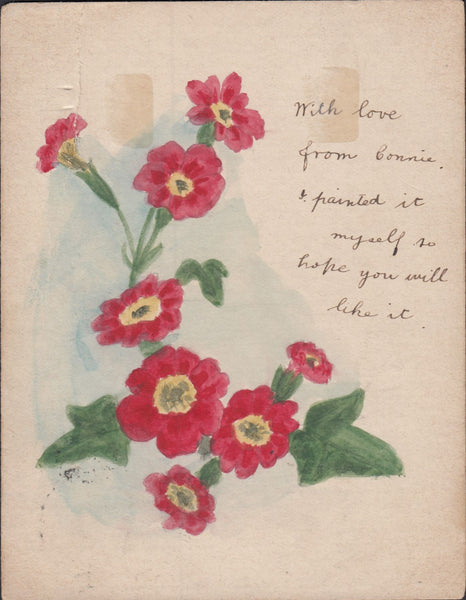 With love
from Connie.
I painted it
myself so
hope you will
like it.